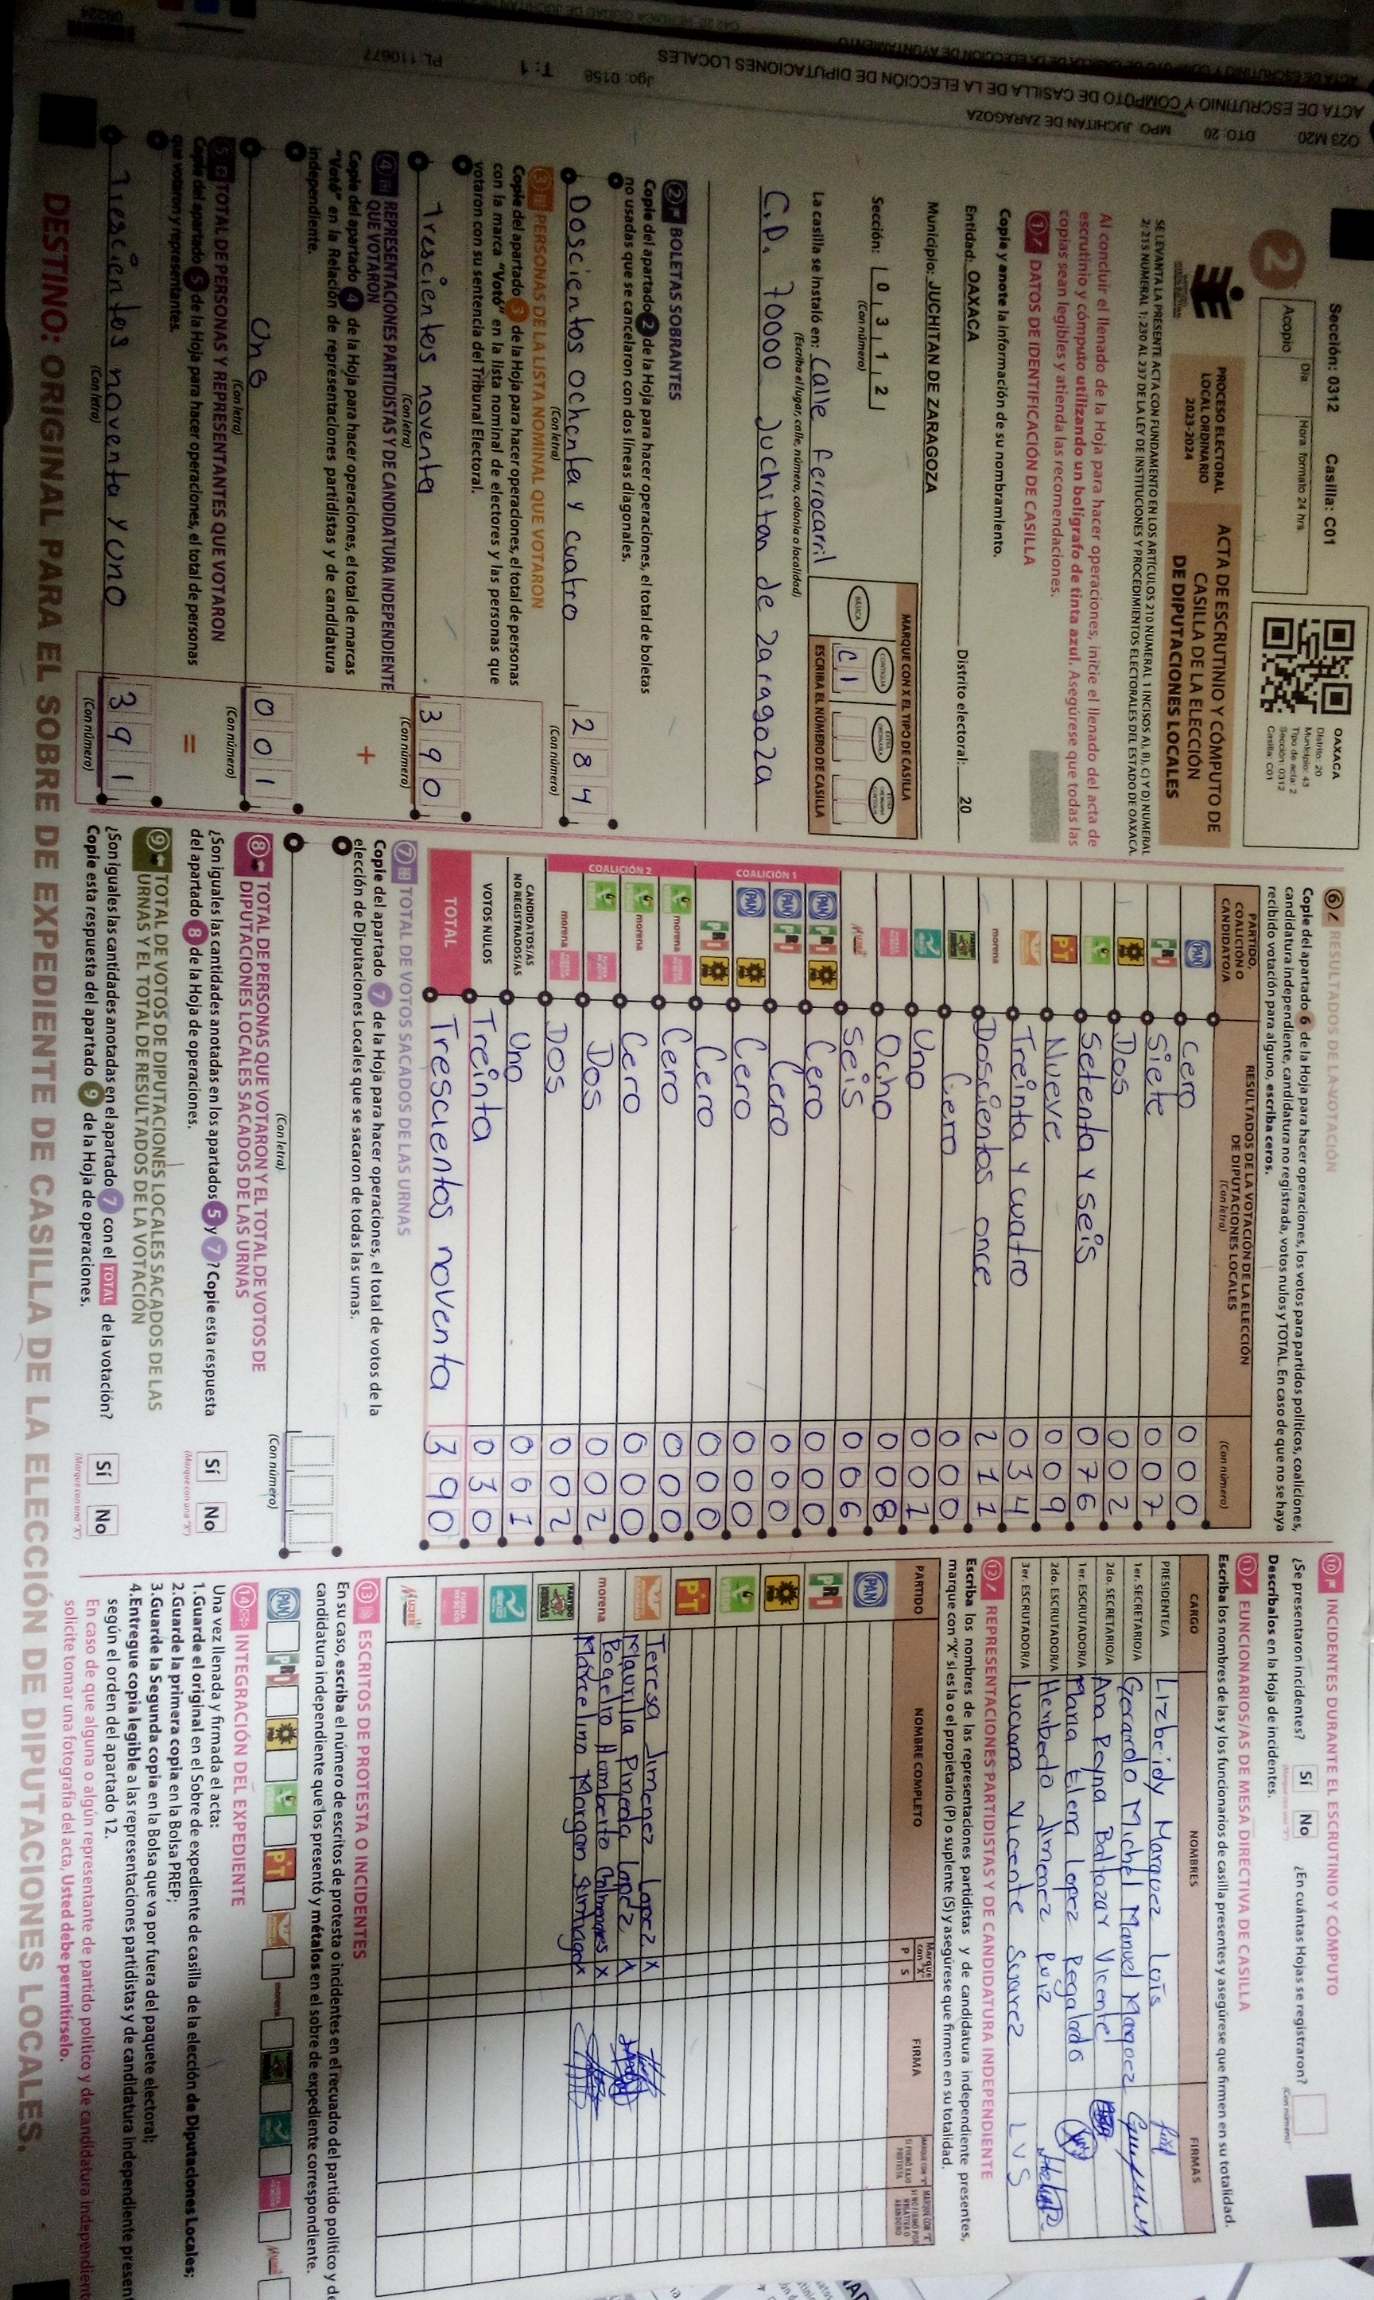 ACTA DE ESCRUTINIO Y CÓMPUTO DE CASILLA DE LA ELECCIÓN DE DIPUTACIONES LOCALES
O23 M20 DTO: 20 MPO: JUCHITAN DE ZARAGOZA
Jgo: 0158 T: 1 PL: 110677
Sección: 0312 Casilla: C01
2
Día: Hora: formato 24 hrs.
Acopio
OAXACA
Distrito: 20
Municipio: 43
Tipo de acta: 2
Sección: 0312
Casilla: C01
PROCESO ELECTORAL
LOCAL ORDINARIO
2023-2024
ACTA DE ESCRUTINIO Y CÓMPUTO DE
CASILLA DE LA ELECCIÓN
DE DIPUTACIONES LOCALES
SE LEVANTA LA PRESENTE ACTA CON FUNDAMENTO EN LOS ARTÍCULOS 210 NUMERAL 1 INCISOS A), B), C) Y D) NUMERAL
2; 215 NUMERAL 1; 230 AL 237 DE LA LEY DE INSTITUCIONES Y PROCEDIMIENTOS ELECTORALES DEL ESTADO DE OAXACA.
Al concluir el llenado de la Hoja para hacer operaciones, inicie el llenado del acta de
escrutinio y cómputo utilizando un bolígrafo de tinta azul. Asegúrese que todas las
copias sean legibles y atienda las recomendaciones.
1 DATOS DE IDENTIFICACIÓN DE CASILLA
Copie y anote la información de su nombramiento.
Entidad: OAXACA Distrito electoral: 20
Municipio: JUCHITAN DE ZARAGOZA
Sección: 0 3 1 2
(Con número)
MARQUE CON X EL TIPO DE CASILLA
BÁSICA CONTIGUA
C 1
ESCRIBA EL NÚMERO DE CASILLA
La casilla se instaló en: Calle ferrocarril
(Escriba el lugar, calle, número, colonia o localidad)
C.P. 70000 Juchitan de Zaragoza
2 BOLETAS SOBRANTES
Copie del apartado 2 de la Hoja para hacer operaciones, el total de boletas
no usadas que se cancelaron con dos líneas diagonales.
Doscientos ochenta y cuatro 2 8 4
(Con letra) (Con número)
3 PERSONAS DE LA LISTA NOMINAL QUE VOTARON
Copie del apartado 3 de la Hoja para hacer operaciones, el total de personas
con la marca "Votó" en la lista nominal de electores y las personas que
votaron con su sentencia del Tribunal Electoral.
Trescientos noventa 3 9 0
(Con letra) (Con número)
4 REPRESENTACIONES PARTIDISTAS Y DE CANDIDATURA INDEPENDIENTE
QUE VOTARON +
Copie del apartado 4 de la Hoja para hacer operaciones, el total de marcas
"Votó" en la Relación de representaciones partidistas y de candidatura
independiente.
Uno 0 0 1
(Con letra) (Con número)
5 TOTAL DE PERSONAS Y REPRESENTANTES QUE VOTARON
Copie del apartado 5 de la Hoja para hacer operaciones, el total de personas
que votaron y representantes. =
Trescientos noventa y uno 3 9 1
(Con letra) (Con número)
6 RESULTADOS DE LA VOTACIÓN
Copie del apartado 6 de la Hoja para hacer operaciones, los votos para partidos políticos, coaliciones,
candidatura independiente, candidatura no registrada, votos nulos y TOTAL. En caso de que no se haya
recibido votación para alguno, escriba ceros.
PARTIDO, COALICIÓN O CANDIDATO/A RESULTADOS DE LA VOTACIÓN DE LA ELECCIÓN DE DIPUTACIONES LOCALES (Con letra) (Con número)
PAN Cero 0 0 0
PRI Siete 0 0 7
PRD Dos 0 0 2
Setenta y seis 0 7 6
PT Nueve 0 0 9
Treinta y cuatro 0 3 4
morena Doscientos once 2 1 1
Cero 0 0 0
Uno 0 0 1
Ocho 0 0 8
Mujer Seis 0 0 6
COALICIÓN 1
PAN PRI PRD Cero 0 0 0
PAN PRI Cero 0 0 0
PAN PRD Cero 0 0 0
PRI PRD Cero 0 0 0
COALICIÓN 2
morena Cero 0 0 0
morena Cero 0 0 0
Dos 0 0 2
morena Dos 0 0 2
CANDIDATOS/AS NO REGISTRADOS/AS Uno 0 0 1
VOTOS NULOS Treinta 0 3 0
TOTAL Trescientos noventa 3 9 0
7 TOTAL DE VOTOS SACADOS DE LAS URNAS
Copie del apartado 7 de la Hoja para hacer operaciones, el total de votos de la
elección de Diputaciones Locales que se sacaron de todas las urnas.
(Con letra) (Con número)
8 TOTAL DE PERSONAS QUE VOTARON Y EL TOTAL DE VOTOS DE
DIPUTACIONES LOCALES SACADOS DE LAS URNAS
¿Son iguales las cantidades anotadas en los apartados 5 y 7? Copie esta respuesta
del apartado 8 de la Hoja de operaciones. Sí No
(Marque con una "X")
9 TOTAL DE VOTOS DE DIPUTACIONES LOCALES SACADOS DE LAS
URNAS Y EL TOTAL DE RESULTADOS DE LA VOTACIÓN
¿Son iguales las cantidades anotadas en el apartado 7 con el TOTAL de la votación?
Copie esta respuesta del apartado 9 de la Hoja de operaciones. Sí No
(Marque con una "X")
10 INCIDENTES DURANTE EL ESCRUTINIO Y CÓMPUTO
¿Se presentaron incidentes? Sí No ¿En cuántas Hojas se registraron?
(Con número)
Descríbalos en la Hoja de incidentes.
11 FUNCIONARIOS/AS DE MESA DIRECTIVA DE CASILLA
Escriba los nombres de las y los funcionarios de casilla presentes y asegúrese que firmen en su totalidad.
CARGO NOMBRES FIRMAS
PRESIDENTE/A Lizbeidy Marquez Lois
1er. SECRETARIO/A Gerardo Michel Manuel Marquez
2do. SECRETARIO/A Ana Reyna Baltazar Vicente
1er. ESCRUTADOR/A Maria Elena Lopez Regalado
2do. ESCRUTADOR/A Heriberto Jimenez Ruiz
3er. ESCRUTADOR/A Luciana Vicente Suarez LVS
12 REPRESENTACIONES PARTIDISTAS Y DE CANDIDATURA INDEPENDIENTE
Escriba los nombres de las representaciones partidistas y de candidatura independiente presentes,
marque con "X" si es la o el propietario (P) o suplente (S) y asegúrese que firmen en su totalidad.
PARTIDO NOMBRE COMPLETO Marque con "X" P S FIRMA
PAN
PRI
PRD
PT
Teresa Jimenez Lopez X
Mauxilia Pineda Lopez X
morena Rogelio Humberto Palomares X
Marcelino Morgan Santiago X
Mujer
13 ESCRITOS DE PROTESTA O INCIDENTES
En su caso, escriba el número de escritos de protesta o incidentes en el recuadro del partido político y de
candidatura independiente que los presentó y métalos en el sobre de expediente correspondiente.
PAN PRI PRD PT morena Mujer
14 INTEGRACIÓN DEL EXPEDIENTE
Una vez llenada y firmada el acta:
1.Guarde el original en el Sobre de expediente de casilla de la elección de Diputaciones Locales;
2.Guarde la primera copia en la Bolsa PREP;
3.Guarde la Segunda copia en la Bolsa que va por fuera del paquete electoral;
4.Entregue copia legible a las representaciones partidistas y de candidatura independiente presen
según el orden del apartado 12.
En caso de que alguna o algún representante de partido político y de candidatura independient
solicite tomar una fotografía del acta, Usted debe permitírselo.
DESTINO: ORIGINAL PARA EL SOBRE DE EXPEDIENTE DE CASILLA DE LA ELECCIÓN DE DIPUTACIONES LOCALES.